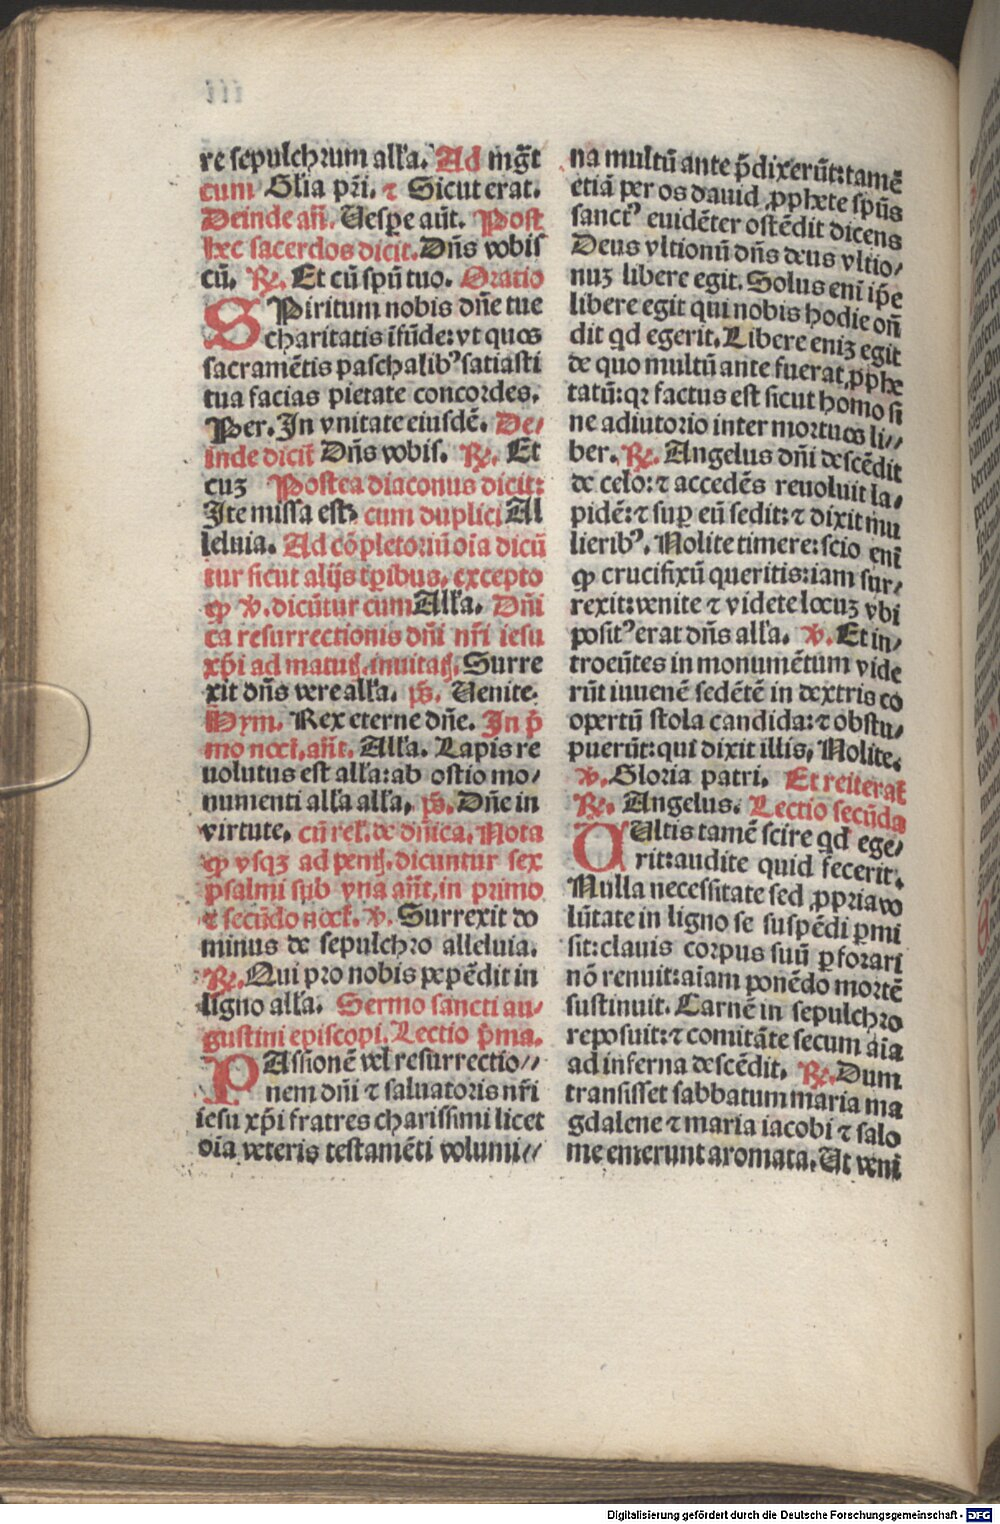 re sepulchrum alľa. Ad mgᷓt
cum Glia pr̃i. ⁊ Sicut erat.
Deinde añ. Uespe aũt. Post
hec sacerdos dicit. Dñs vobis
cũ. ℟. Et cũ spũ tuo. Oratio
SPiritum nobis dñe tue
charitatis ĩfũde: vt quos
sacramẽtis paschalibꝰ satiasti
tua facias pietate concordes.
Per. In vnitate eiusdẽ. De/
inde dicit̃ Dñs vobis. ℟. Et
cuʒ Postea diaconus dicit:
Ite missa est, cum duplici Al
leluia. Ad cõpletoriũ oĩa dicũ
tur sicut alijs tꝑibus, excepto
ꝙ ℣. dicũtur cum Alľa. Dñi
ca resurrectionis dñi nr̃i iesu
xp̃i ad matutꝭ. inuitatꝭ. Surre
xit dñs vere alľa. p̃s. Uenite.
Hym. Rex eterne dñe. In p̃
mo noct̃. añt. Alľa. Lapis re
uolutus est alľa: ab ostio mo/
numenti alľa alľa. p̃s. Dñe in
virtute. cũ rel̃. de dñica. Nota
ꝙ vsqʒ ad pentꝭ. dicuntur sex
psalmi sub vna añt, in primo
⁊ secũdo noct̃. ℣. Surrexit do
minus de sepulchro alleluia.
℟. Qui pro nobis pepẽdit in
ligno alľa. Sermo sancti au/
gustini episcopi. Lectio p̃ma.
PAssionẽ vel resurrectio//
nem dñi ⁊ saluatoris nr̃i
iesu xp̃i fratres charissimi licet
oĩa veteris testamẽti volumi//
na multũ ante p̃dixerũt: tamẽ
etiã per os dauid ꝓphete spũs
sanctꝰ euidẽter ostẽdit dicens
Deus vltionũ dñs deus vltio/
nuʒ libere egit. Solus enĩ ip̃e
libere egit qui nobis hodie oñ
dit qd egerit. Libere eniʒ egit
de quo multũ ante fuerat ꝓphe
tatũ: qꝛ factus est sicut homo si
ne adiutorio inter mortuos li//
ber. ℟. Angelus dñi descẽdit
de celo: ⁊ accedẽs reuoluit la/
pidẽ: ⁊ suꝑ eũ sedit: ⁊ dixit mu
lieribꝰ. Nolite timere: scio enĩ
ꝙ crucifixũ queritis: iam sur/
rexit: venite ⁊ videte locuʒ vbi
positꝰ erat dñs alľa. ℣. Et in/
troeũtes in monumẽtum vide
rũt iuuenẽ sedẽtẽ in dextris co
opertũ stola candida: ⁊ obstu/
puerũt: qui dixit illis, Nolite.
℣. Gloria patri. Et reiterat̃
℟. Angelus. Lectio secũda
UUltis tamẽ scire qd ege/
rit: audite quid fecerit.
Nulla necessitate sed ꝓpria vo
lũtate in ligno se suspẽdi ꝑmi
sit: clauis corpus suũ ꝑforari
nõ renuit: aĩam ponẽdo mortẽ
sustinuit. Carnẽ in sepulchro
reposuit: ⁊ comitãte secum aĩa
ad inferna descẽdit. ℟. Dum
transisset sabbatum maria ma
gdalene ⁊ maria iacobi ⁊ salo
me emerunt aromata. Ut venĩ
Digitalisierung gefördert durch die Deutsche Forschungsgemeinschaft - DFG